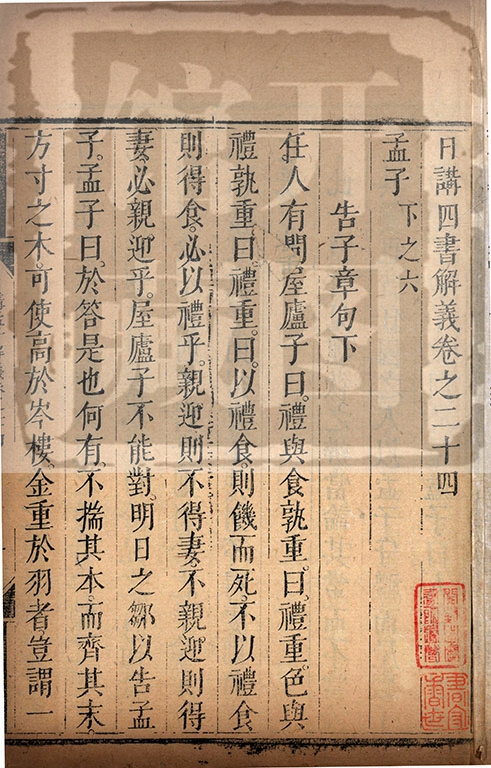 日講四書解義卷之二十四
孟子 下之六
告子章句下
任人有問屋廬子曰。禮與食孰重。曰。禮重。色與
禮孰重。曰。禮重。曰。以禮食。則饑而死。不以禮食
則得食。必以禮乎。親迎則不得妻。不親迎則得
妻。必親迎乎。屋廬子不能對。明日之鄒以告孟
子。孟子曰。於答是也何有。不揣其本。而齊其末。
方寸之木。可使高於岑樓。金重於羽者。豈謂一